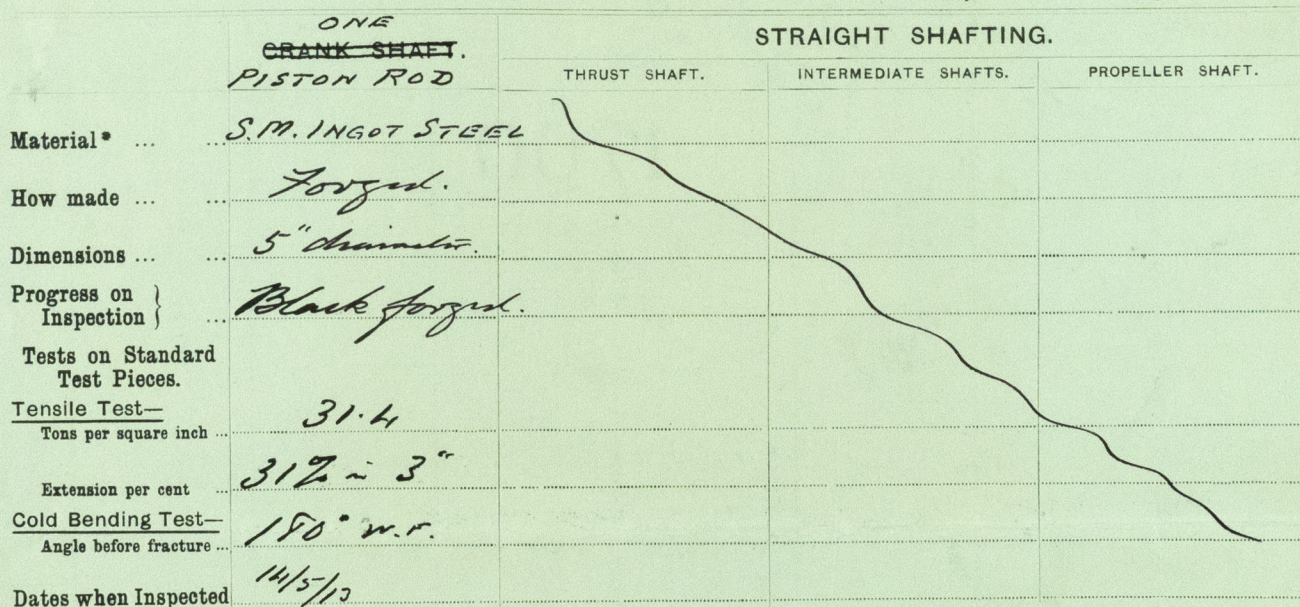 ONE
CRANK SHAFT.
PISTON ROD
STRAIGHT SHAFTING.
THRUST SHAFT. INTERMEDIATE SHAFTS. PROPELLER SHAFT.
Material* ... ... S.M. INGOT STEEL
How made ... ... Forged.
Dimensions ... ... 5" diameter.
Progress on
Inspection } ... Black forged.
Tests on Standard
Test Pieces.
Tensile Test—
Tons per square inch ... 31.4
Extension per cent ... 31% in 3"
Cold Bending Test—
Angle before fracture ... 180° W.F.
Dates when Inspected 14/5/13